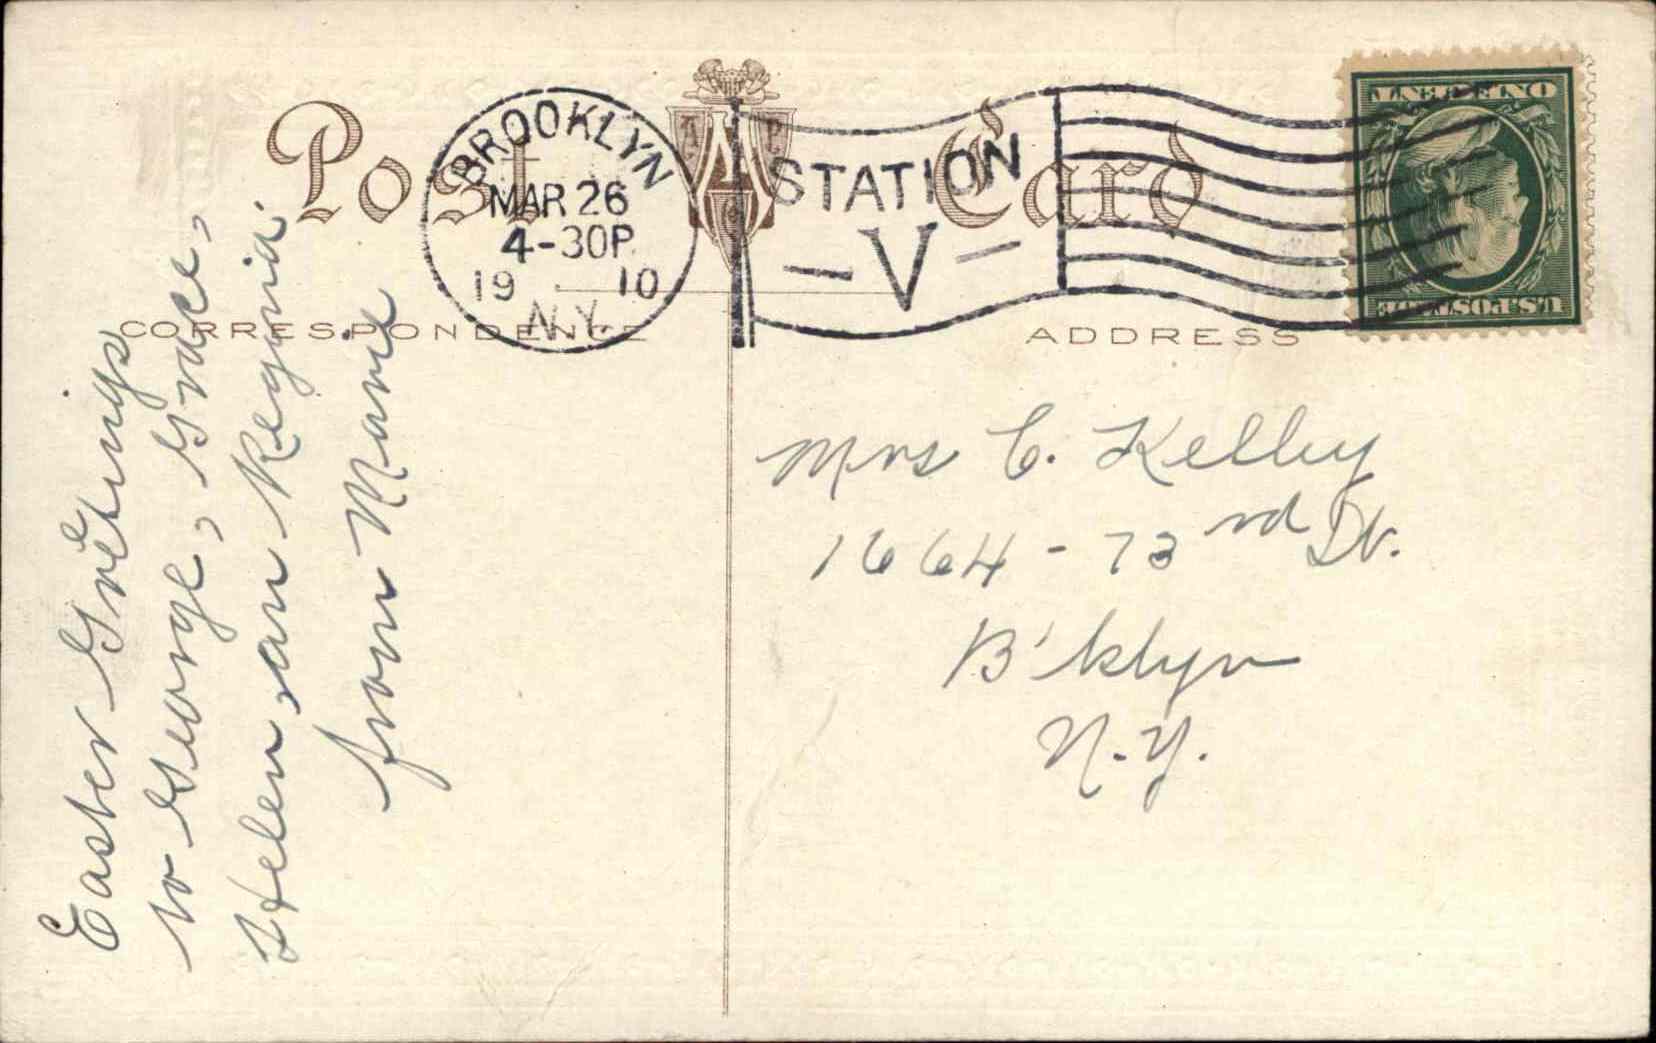 Post Card
BROOKLYN
MAR 26
4-30P
19 10
N.Y.
STATION
- V -
CORRESPONDENCE
ADDRESS
ONE CENT
U.S. POSTAGE
Easter Greetings
to George, Grace,
Helen, an Regina
from Marie
Mrs C. Kelley
1664 - 73rd St.
B'klyn
N.Y.